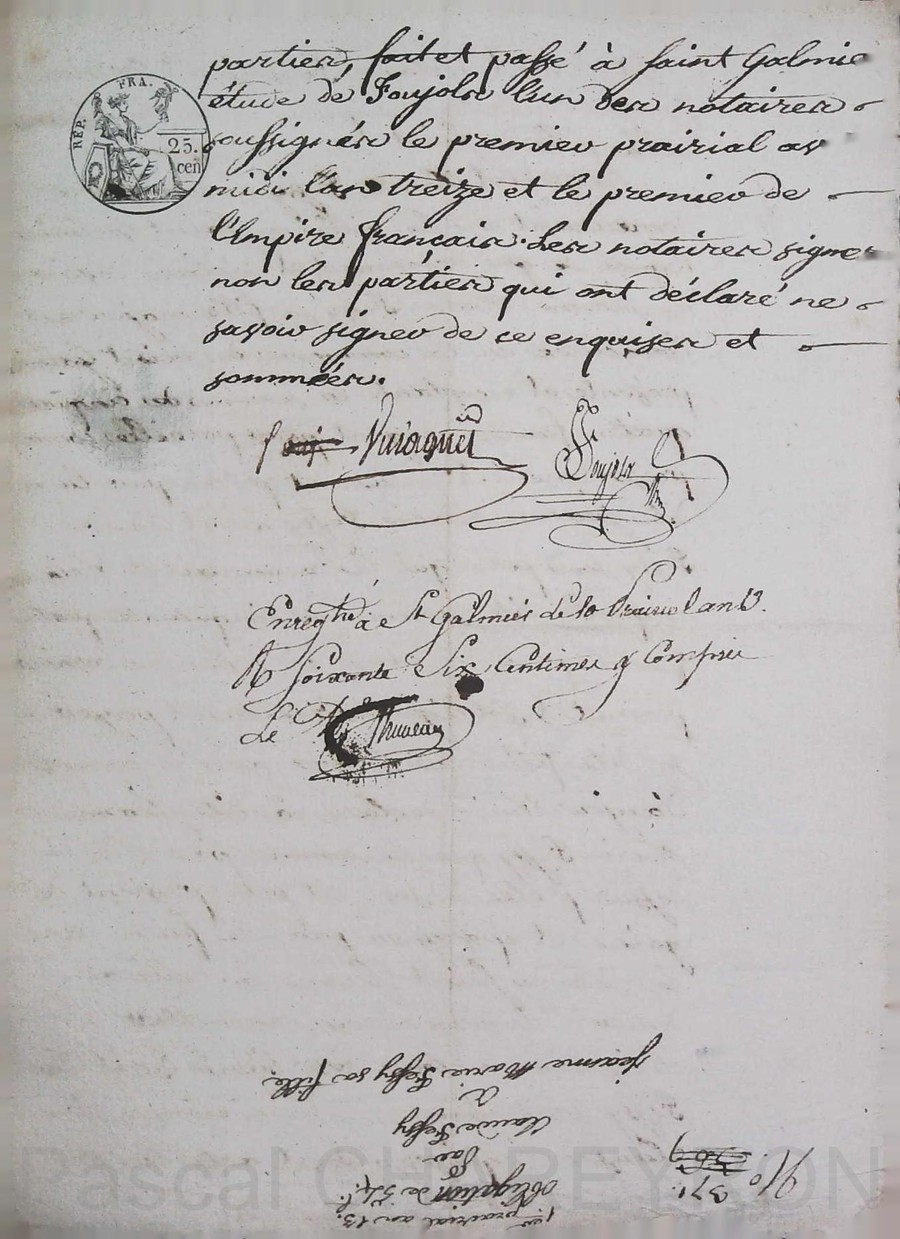 parties, fait et passé à saint Galmie
étude de Foujols l'un des notaires
soussignés le premier prairial av
midi l'an treize et le premier de
l'Empire français. Les notaires signe
non les parties qui ont déclaré ne
savoir signer de ce enquises et
sommées.
REP. FRA.
25.
cen
Foujols
Enreg.tré à St Galmier le 10 Prairial an 13.
R soixante Six Centimes y Compris
Le
1er prairial an 13.
obligation de 54 f.
Par
Claude Fessy
à
Jeanne Marie Fessy sa fille.
No. 371.
Pascal CHAPEYRON